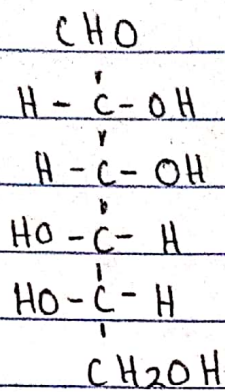 CHO
H - C - OH
H - C - OH
HO - C - H
HO - C - H
CH2OH